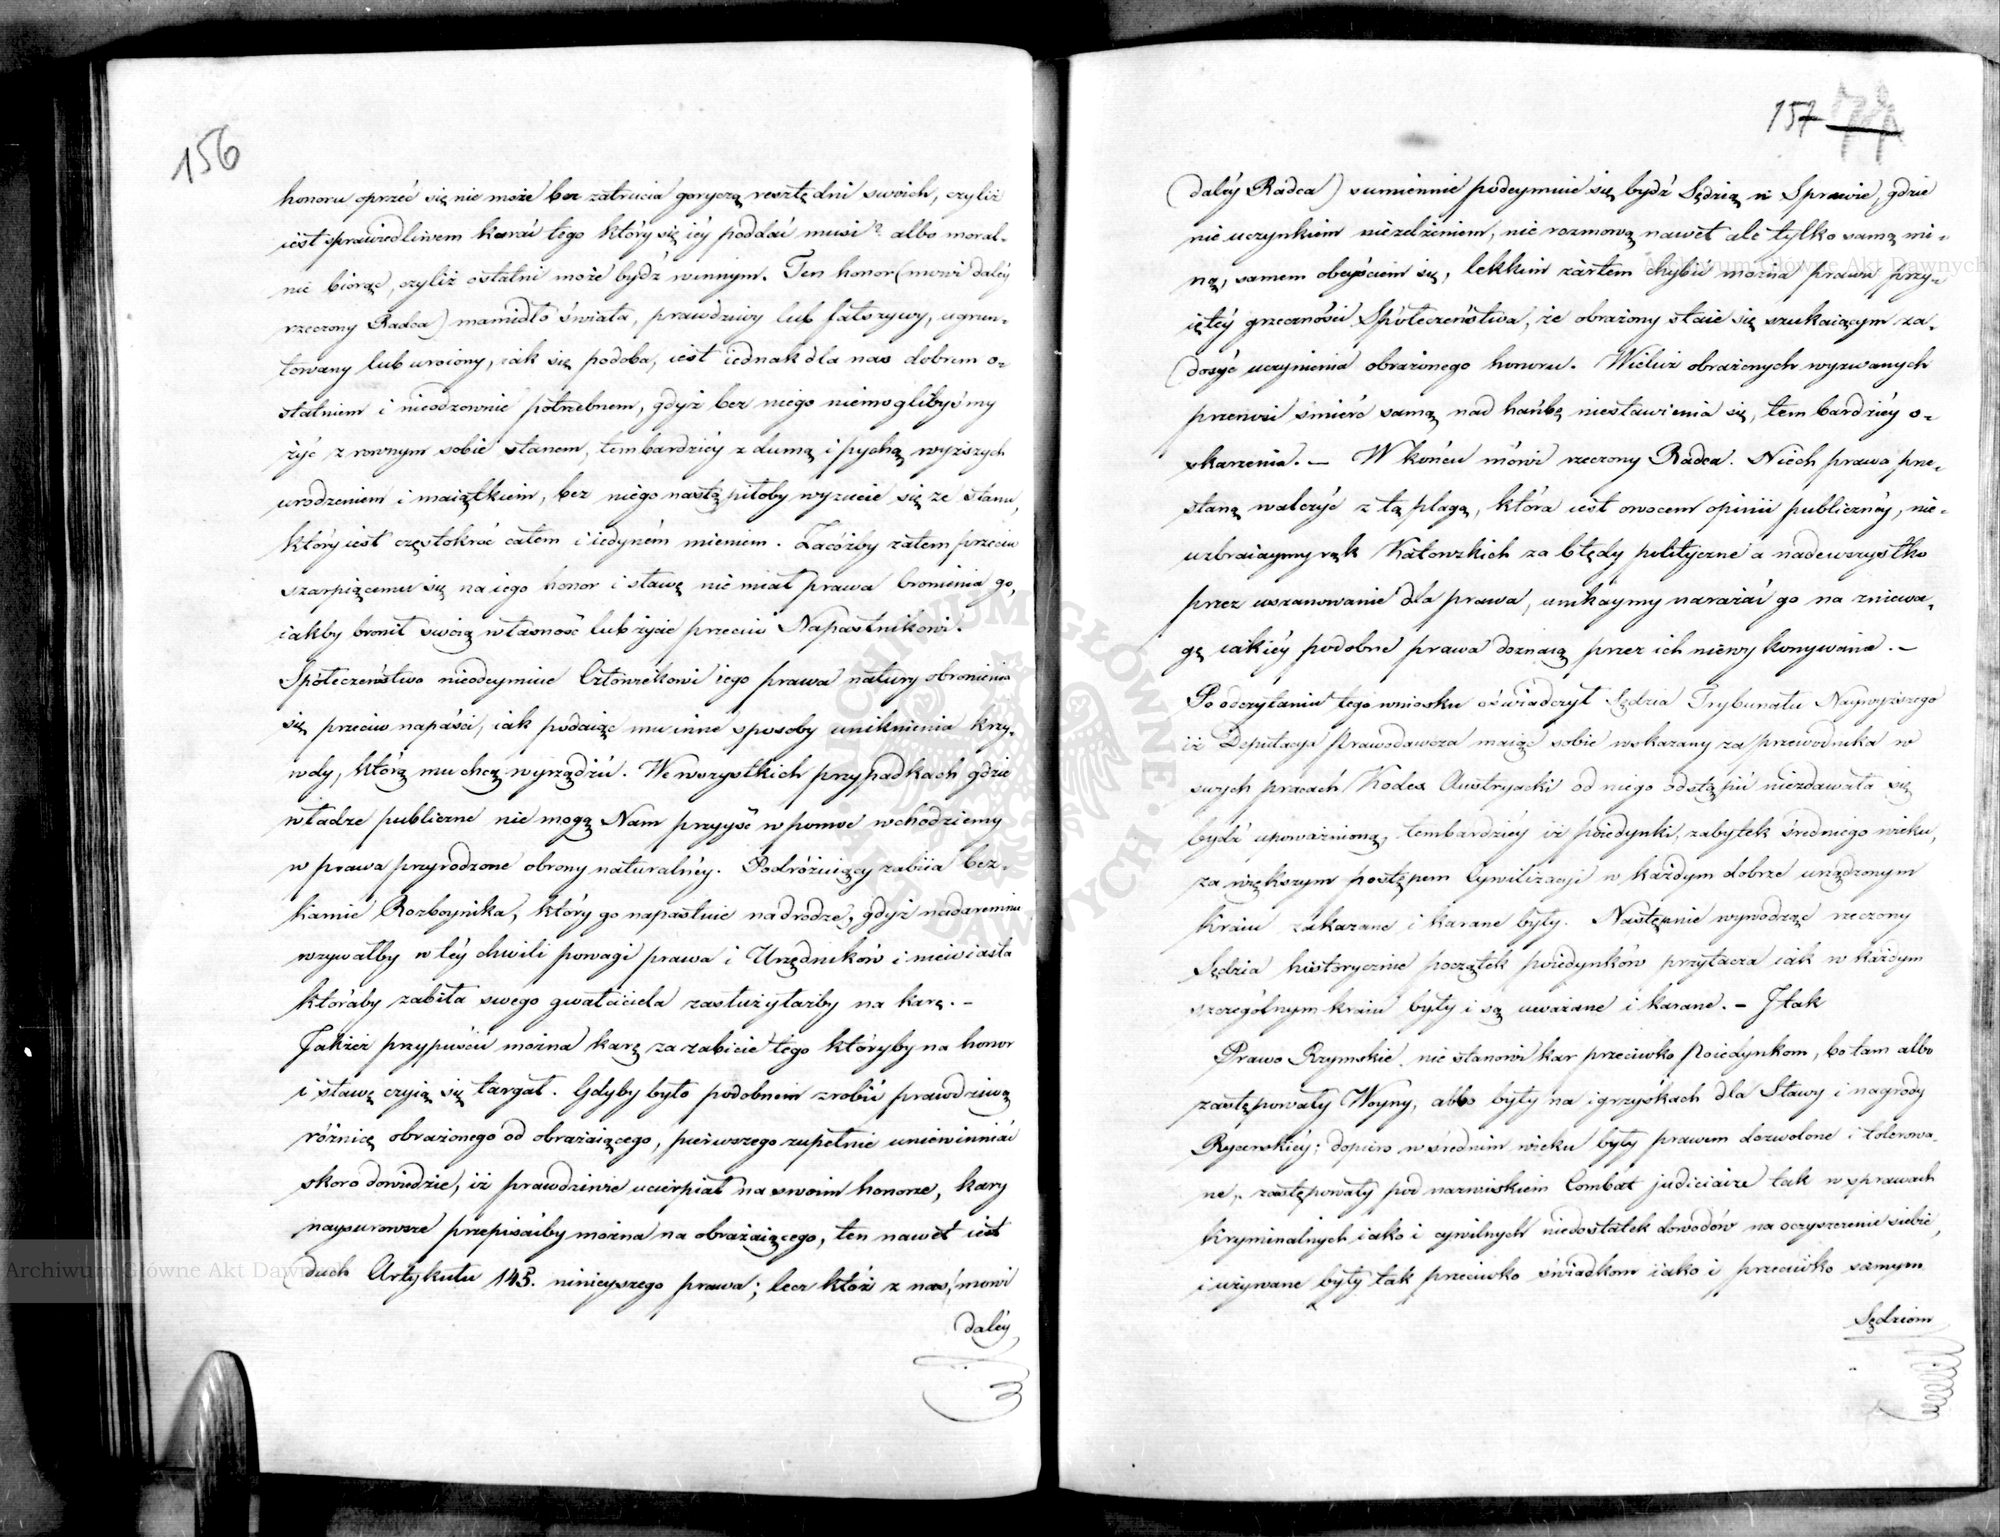 156
honoru oprzeć się nie może bez zatrucia goryczą resztę dni swoich, czyliż
iest sprawiedliwem karać tego który się iéy poddać musi? albo moral-
nie biorąc, czyliż ostatni może bydź winnym. Ten honor (mowi daléy
rzeczony Radca) mamidło świata, prawdziwy lub fałszywy, ugrun-
towany lub uroiony, iak się podoba, iest iednak dla nas dobrem o-
statniem i nieodzownie potrzebnem, gdyż bez niego niemoglibyśmy
żyć z rownym sobie stanem, tembardziéy z dumą i pychą wyższych
urodzeniem i maiątkiem, bez niego nastąpiłoby wyzucie się ze stanu,
który iest częstokroć całem i iedyném mieniem. Zacóżby zatem przeciw
szarpiącemu się na iego honor i sławę nie miał prawa bronienia go,
iakby bronił swoią własność lub życie przeciw Napastnikowi.
Społeczeństwo nieodeymuie Człowiekowi iego prawa natury obronienia
się przeciw napaści, iak podaiąc mu inne sposoby uniknienia krzy-
wdy, którą mu chcą wyrządzić. We wszystkich przypadkach gdzie
władze publiczne nie mogą Nam przyyść w pomoc wchodziemy
w prawa przyrodzone obrony naturalnéy. Podróżuiący zabiia bez-
karnie Rozboynika, który go napastuie na drodze, gdyż nadaremnie
wzywałby w téy chwili powagi prawa i Urzędników i niewiasta
któraby zabiła swego gwałciciela zasłużyłażby na karę. -
Jakżeż przypuścić można karę za zabicie tego któryby na honor
i sławę czyią się targał. Gdyby było podobnem zrobić prawdziwą
różnicę obrażonego od obrażaiącego, pierwszego zupełnie uniewinniać
skoro dowiedzie, iż prawdziwie ucierpiał na swoim honorze, kary
naysurowsze przepisaćby można na obrażaiącego, ten nawet iest
duch Artykułu 145. ninieyszego prawa; lecz któż z nas, (mowi
daléy
157 77
daléy Radca) sumiennie podeymuie się bydź Sędzią w Sprawie, gdzie
nie uczynkiem nie zelżeniem, nie rozmową nawet ale tylko samą mi-
ną, samem obeyściem się, lekkim żartem chybić można prawu przy-
iętéy grzeczności Społeczeństwa, że obrażony staie się szukaiącym za-
dosyć uczynienia obrażonego honoru. Wieluż obrażonych wyzwanych
przenosi śmierć samą nad hańbę niestawienia się, tem bardziéy o-
skarzenia. — W końcu mówi rzeczony Radca. Niech prawa prze-
staną walczyć z tą plagą, która iest owocem opinii publicznéy, nie-
uzbraiaymy rąk Katowskich za błędy polityczne a nadewszystko
przez uszanowanie dla prawa, unikaymy narażać go na zniewa-
gę iakiéy podobne prawa doznaią przez ich niewykonywanie. —
Po odczytaniu tego wniosku oświadczył Sędzia Trybunału Naywyższego
iż Deputacya Prawodawcza maiąc sobie wskazany za przewodnika w
swych pracach Kodex Austryacki od niego odstąpić niezdawała się
bydź upoważnioną, tembardziéy iż poiedynki, zabytek średniego wieku,
za większym postępem Cywilizacyi w każdym dobrze urządzonym
kraiu zakazane i karane były. Następnie wywodząc rzeczony
Sędzia historycznie początek poiedynków przytacza iak w każdym
szczególnym kraiu były i są uważane i karane. — I tak
Prawo Rzymskie nie stanowi kar przeciwko Poiedynkom, bo tam albo
zastępowały Woyny, albo były na igrzyskach dla Sławy i nagrody
Rycerskiéy; dopiero w średnim wieku były prawem dozwolone i tolerowa-
ne, zastępowały pod nazwiskiem Combat judiciaire tak w sprawach
kryminalnych iako i cywilnych niedostatek dowodów na oczyszczenie siebie,
i używane były tak przeciwko świadkom iako i przeciwko samym
Sędziom